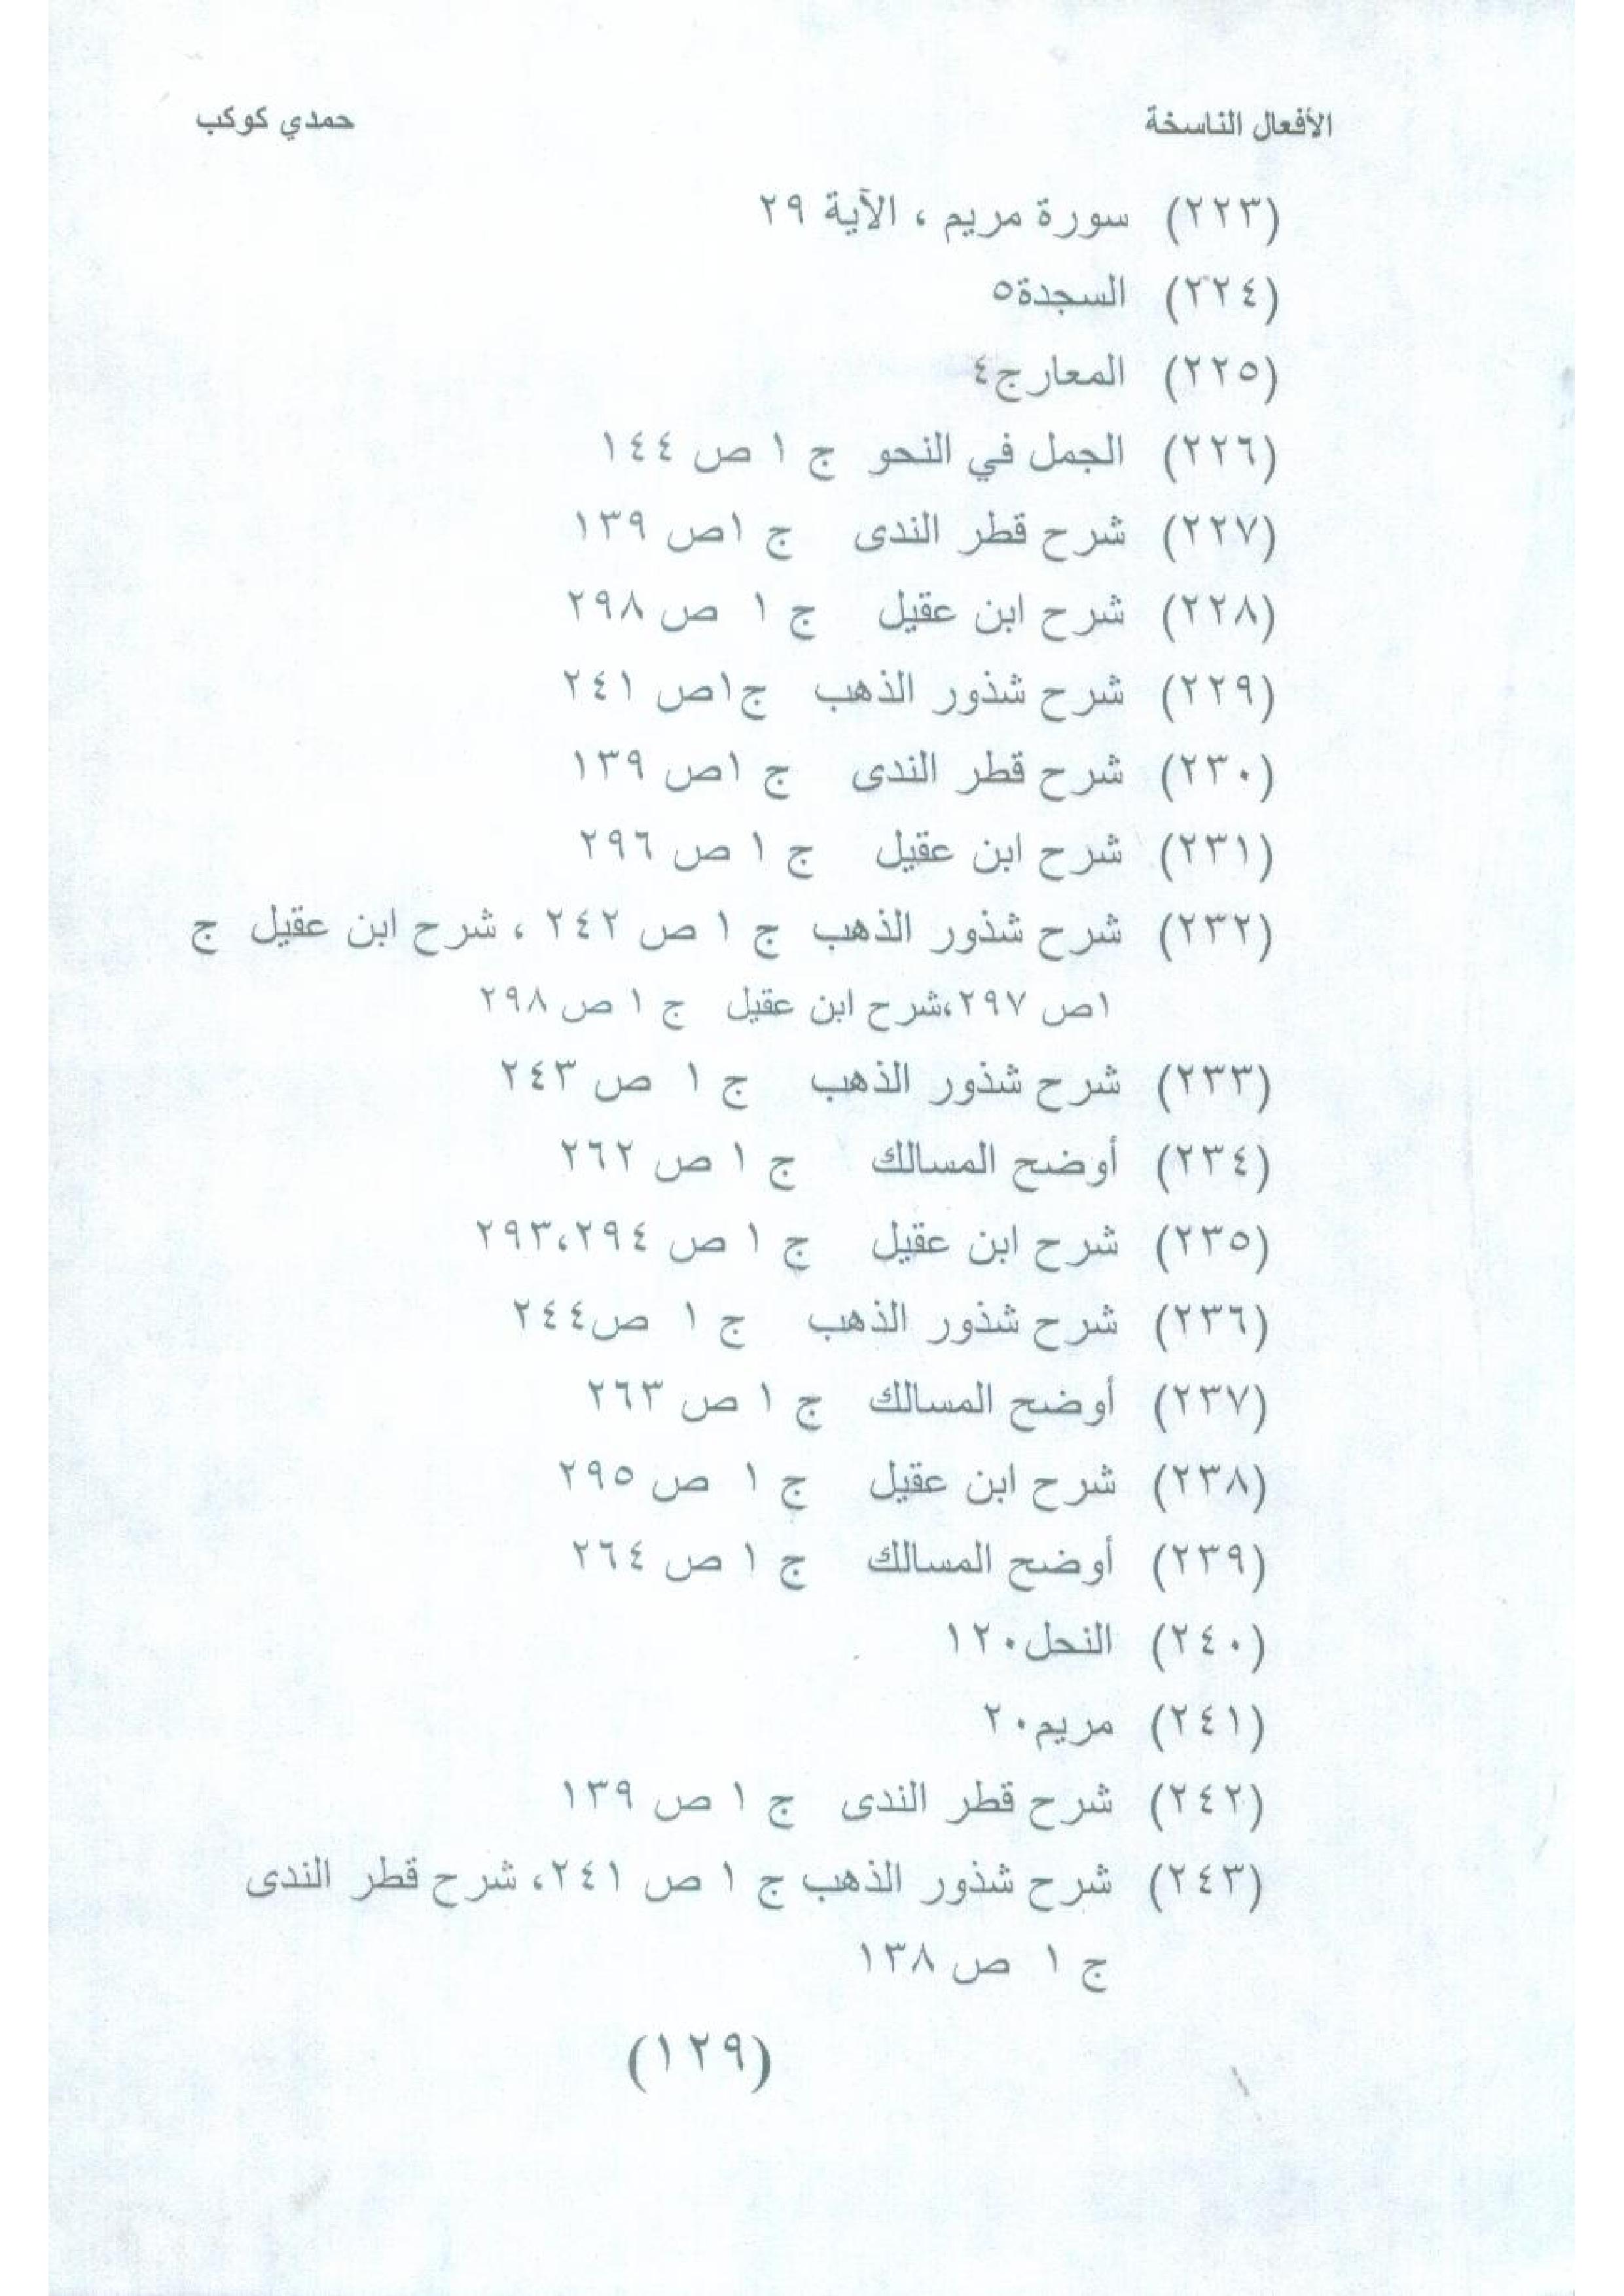 الأفعال الناسخة حمدي كوكب
(٢٢٣) سورة مريم ، الآية ٢٩
(٢٢٤) السجدة٥
(٢٢٥) المعارج٤
(٢٢٦) الجمل في النحو ج ١ ص ١٤٤
(٢٢٧) شرح قطر الندى ج ١ص ١٣٩
(٢٢٨) شرح ابن عقيل ج ١ ص ٢٩٨
(٢٢٩) شرح شذور الذهب ج١ص ٢٤١
(٢٣٠) شرح قطر الندى ج ١ص ١٣٩
(٢٣١) شرح ابن عقيل ج ١ ص ٢٩٦
(٢٣٢) شرح شذور الذهب ج ١ ص ٢٤٢ ، شرح ابن عقيل ج
١ص ٢٩٧،شرح ابن عقيل ج ١ ص ٢٩٨
(٢٣٣) شرح شذور الذهب ج ١ ص ٢٤٣
(٢٣٤) أوضح المسالك ج ١ ص ٢٦٢
(٢٣٥) شرح ابن عقيل ج ١ ص ٢٩٣،٢٩٤
(٢٣٦) شرح شذور الذهب ج ١ ص٢٤٤
(٢٣٧) أوضح المسالك ج ١ ص ٢٦٣
(٢٣٨) شرح ابن عقيل ج ١ ص ٢٩٥
(٢٣٩) أوضح المسالك ج ١ ص ٢٦٤
(٢٤٠) النحل١٢٠
(٢٤١) مريم٢٠
(٢٤٢) شرح قطر الندى ج ١ ص ١٣٩
(٢٤٣) شرح شذور الذهب ج ١ ص ٢٤١، شرح قطر الندى
ج ١ ص ١٣٨
(١٢٩)